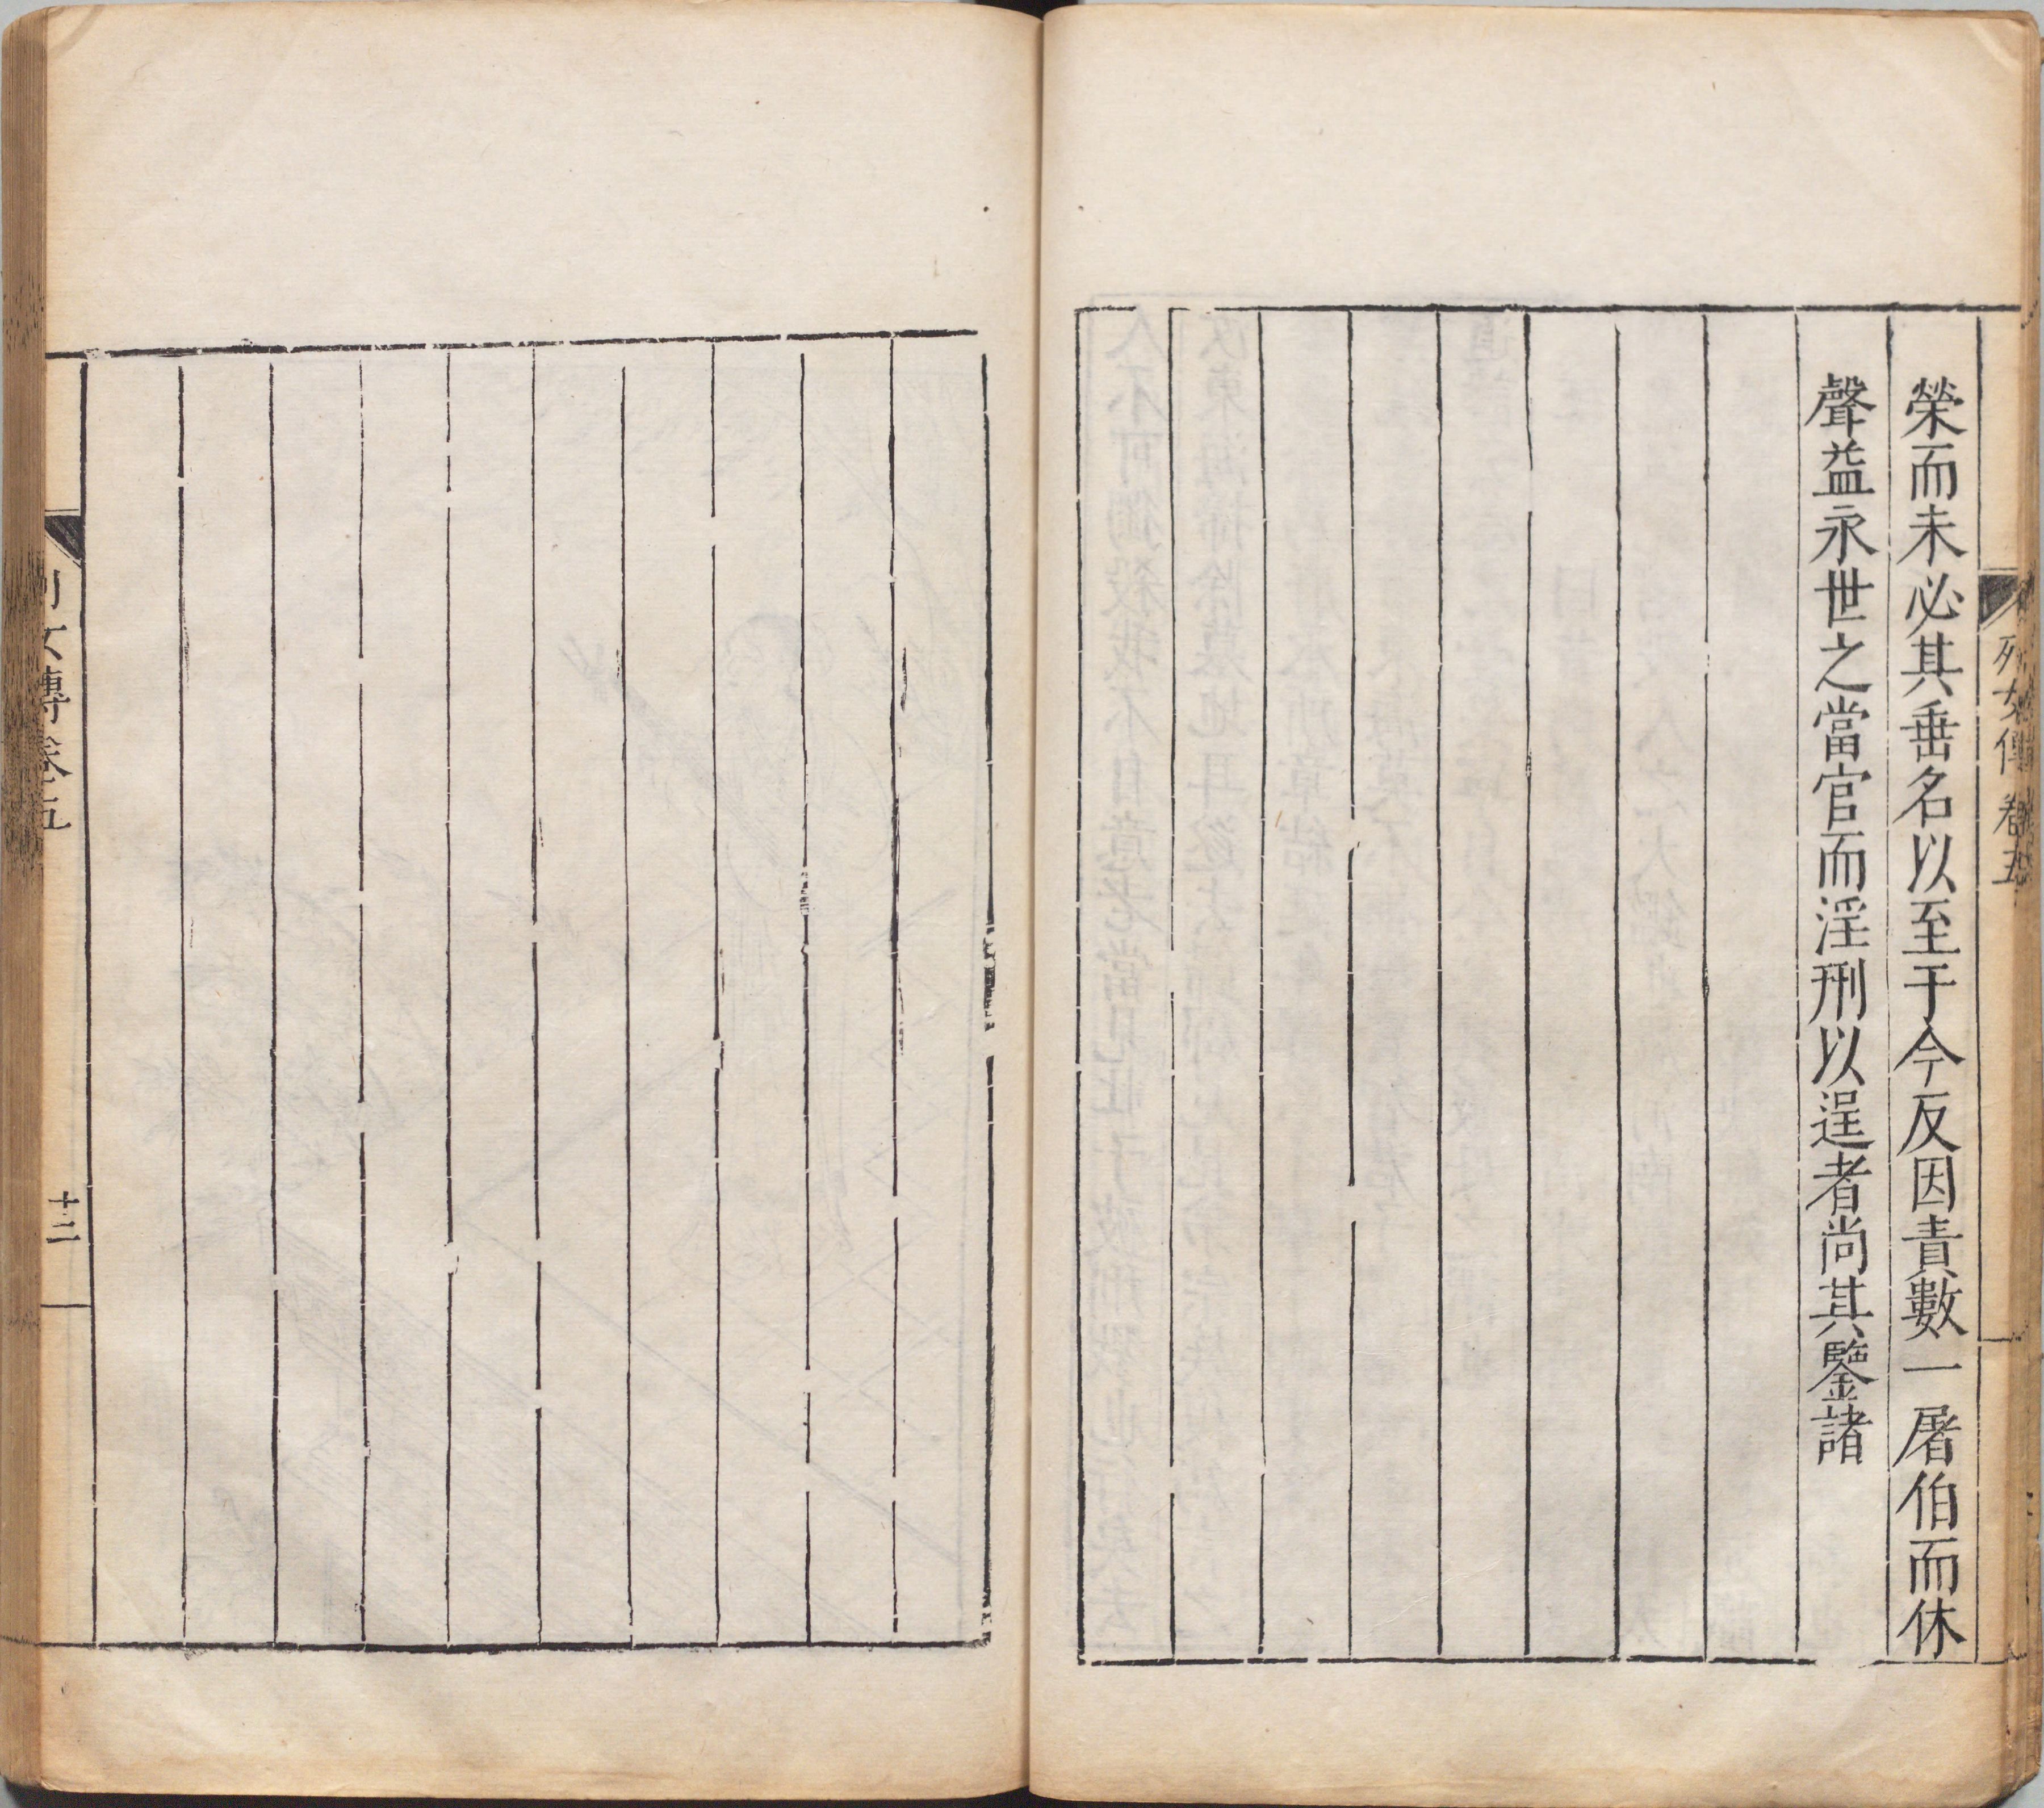 列女傳 卷五
榮而未必其垂名以至于今反因責數一屠伯而休
聲益永世之當官而淫刑以逞者尚其鑒諸
列女傳 卷五
十二